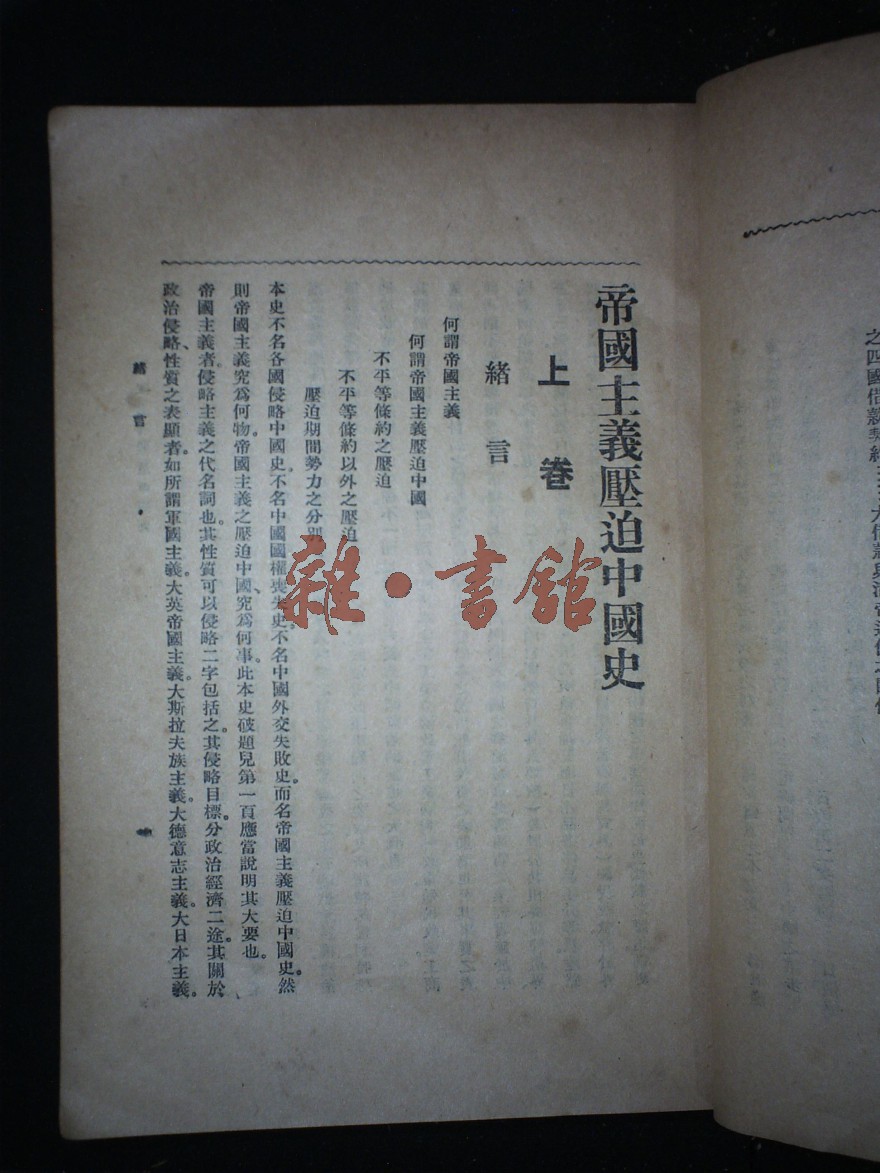 帝國主義壓迫中國史
上卷
緒言
何謂帝國主義
何謂帝國主義壓迫中國
不平等條約之壓迫
不平等條約以外之壓迫
壓迫期間勢力之分別
本史不名各國侵略中國史。不名中國國權喪失史。不名中國外交失敗史。而名帝國主義壓迫中國史。然
則帝國主義究爲何物。帝國主義之壓迫中國、究爲何事。此本史破題兒第一頁應當說明其大要也。
帝國主義者、侵略主義之代名詞也。其性質可以侵略二字包括之。其侵略目標。分政治經濟二途。其關於
政治侵略、性質之表顯者。如所謂軍國主義。大英帝國主義。大斯拉夫族主義。大德意志主義。大日本主義。
緒言
雜·書館